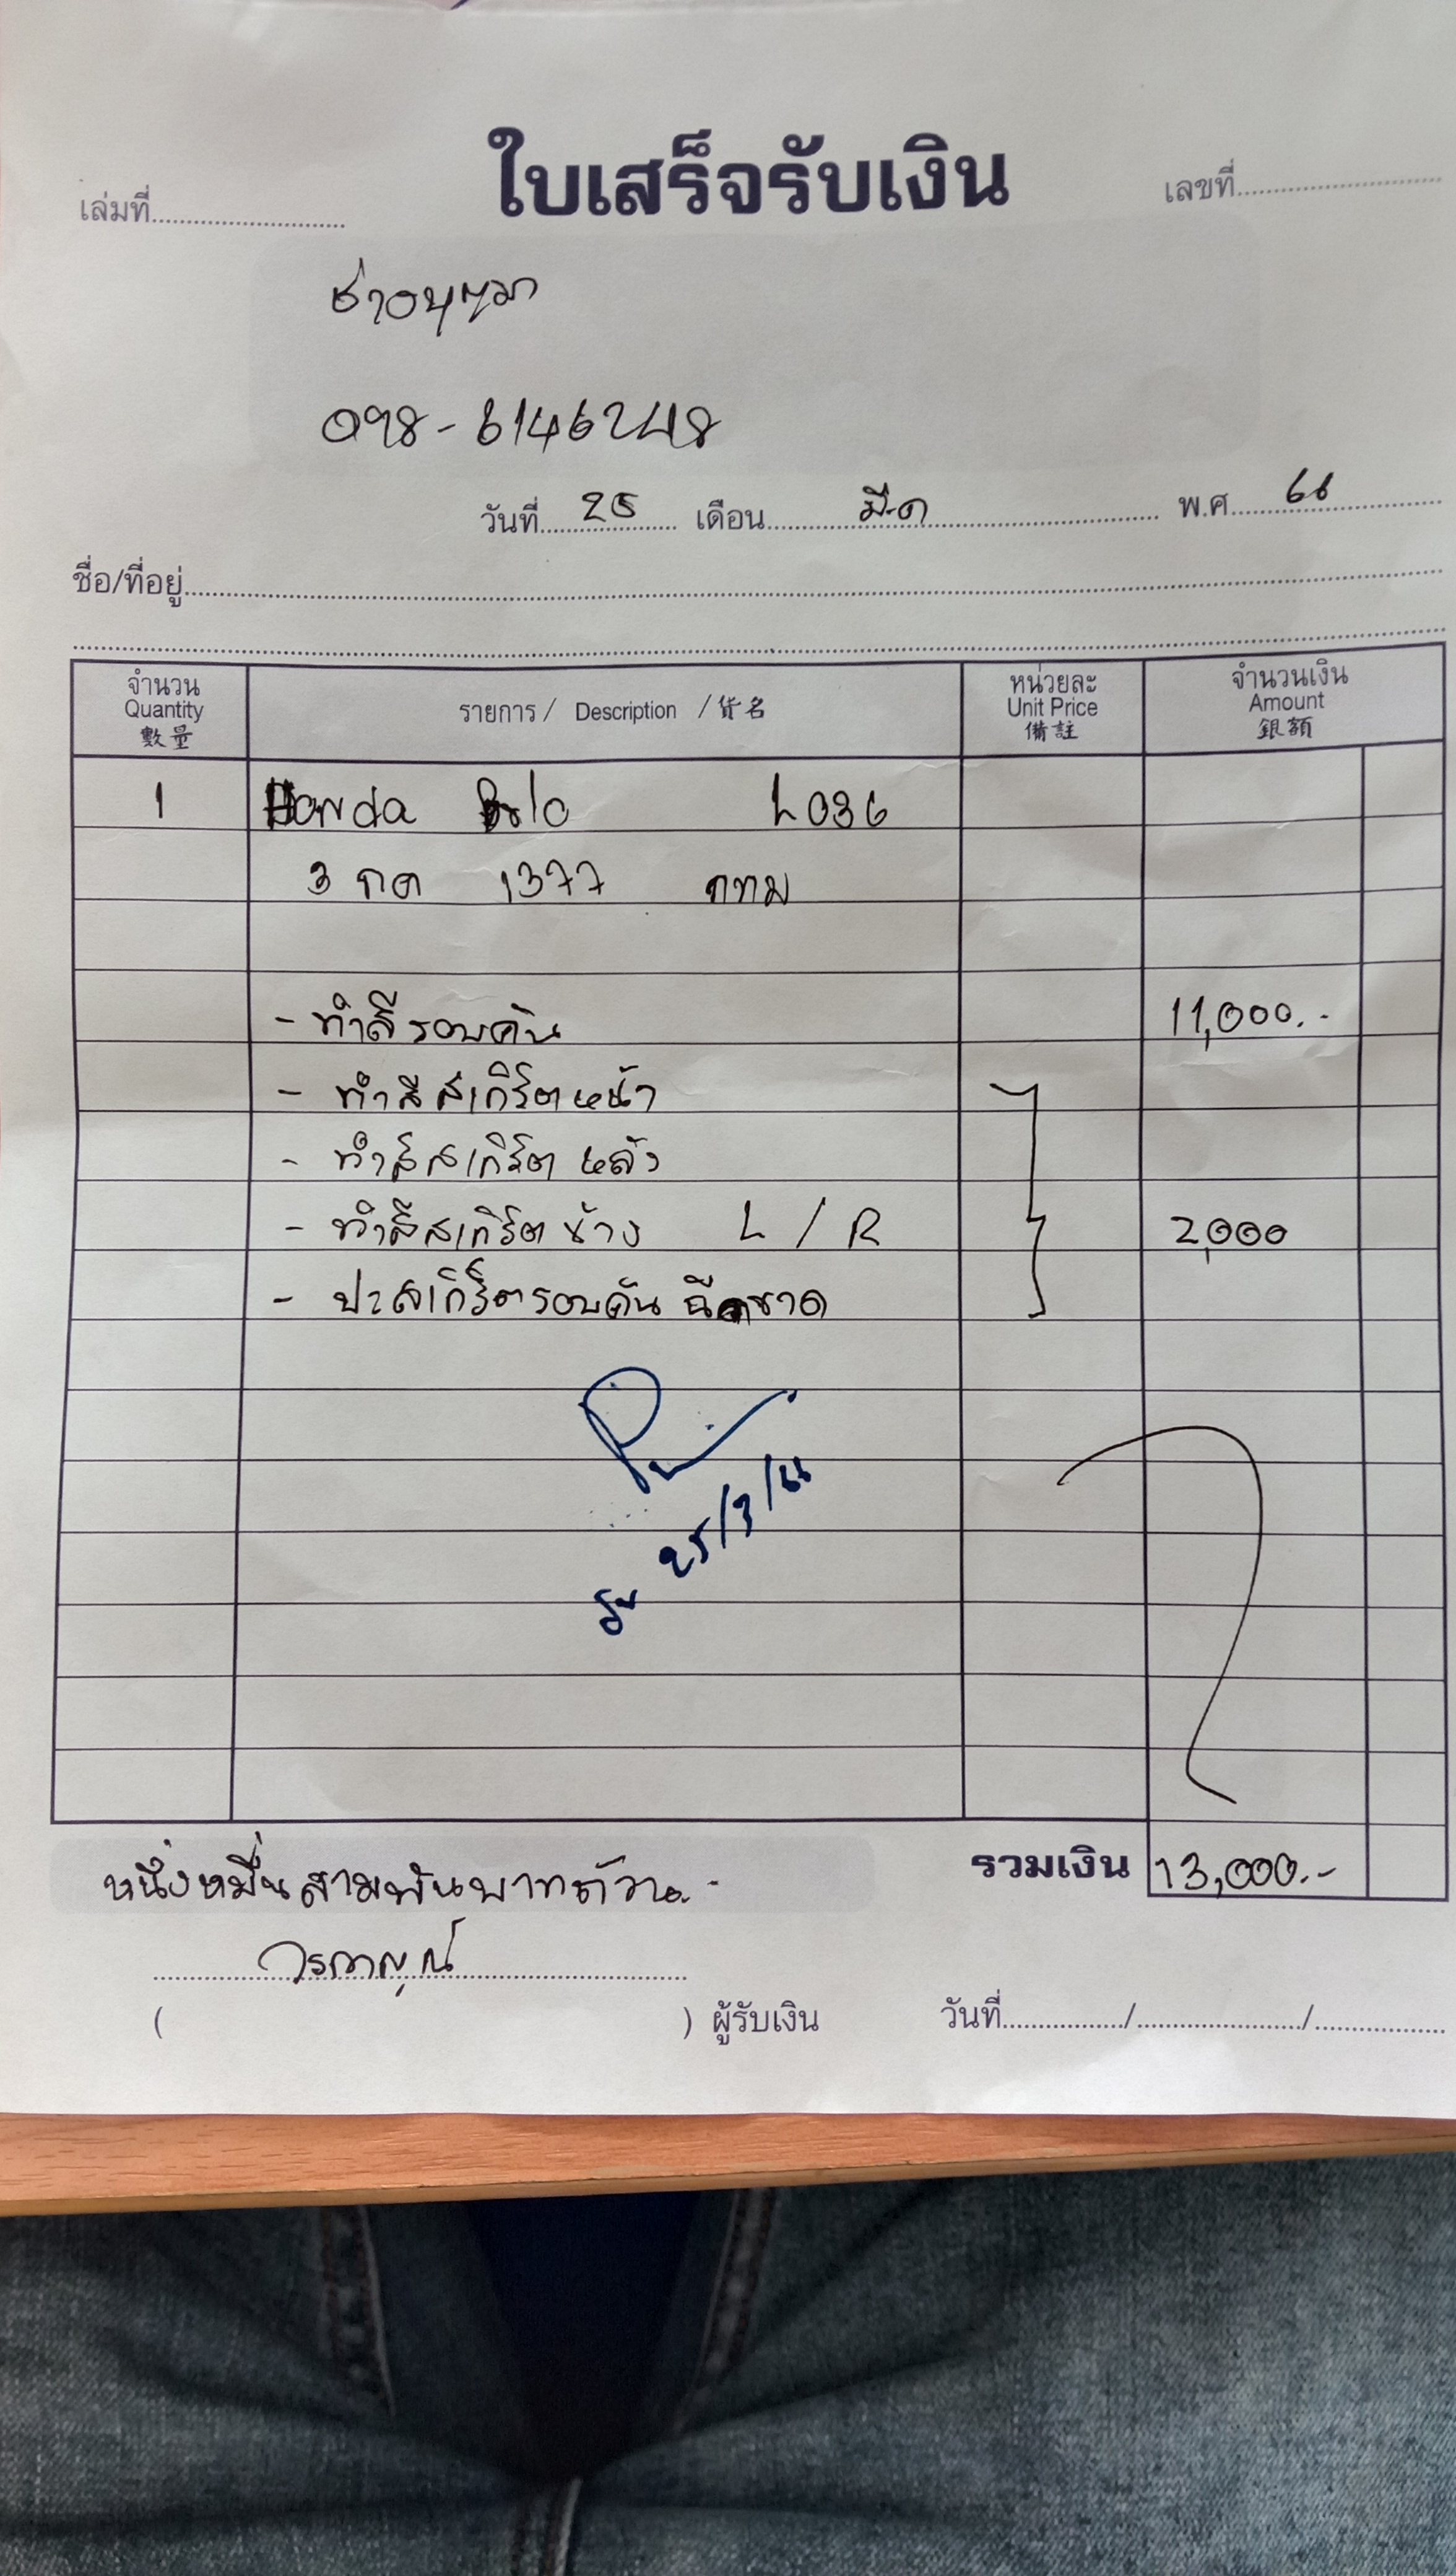 ใบเสร็จรับเงิน
เล่มที่ เลขที่
098-6146248
วันที่ 25 เดือน มี.ค พ.ศ. 66
ชื่อ/ที่อยู่
จำนวน Quantity 數量 รายการ / Description / 貨名 หน่วยละ Unit Price 備註 จำนวนเงิน Amount 銀額
1 Honda L036
3 กต 1377 กทม
- ทำสีรอบคัน 11,000.-
- ทำสีสเกิร์ตหน้า
- ทำสีสเกิร์ต หลัง
- ทำสีสเกิร์ต ข้าง L / R 2,000
- ปะสเกิร์ตรอบคัน ฉีกขาด
25/3/66
หนึ่งหมื่นสามพันบาทถ้วน.- รวมเงิน 13,000.-
( ) ผู้รับเงิน วันที่ / /